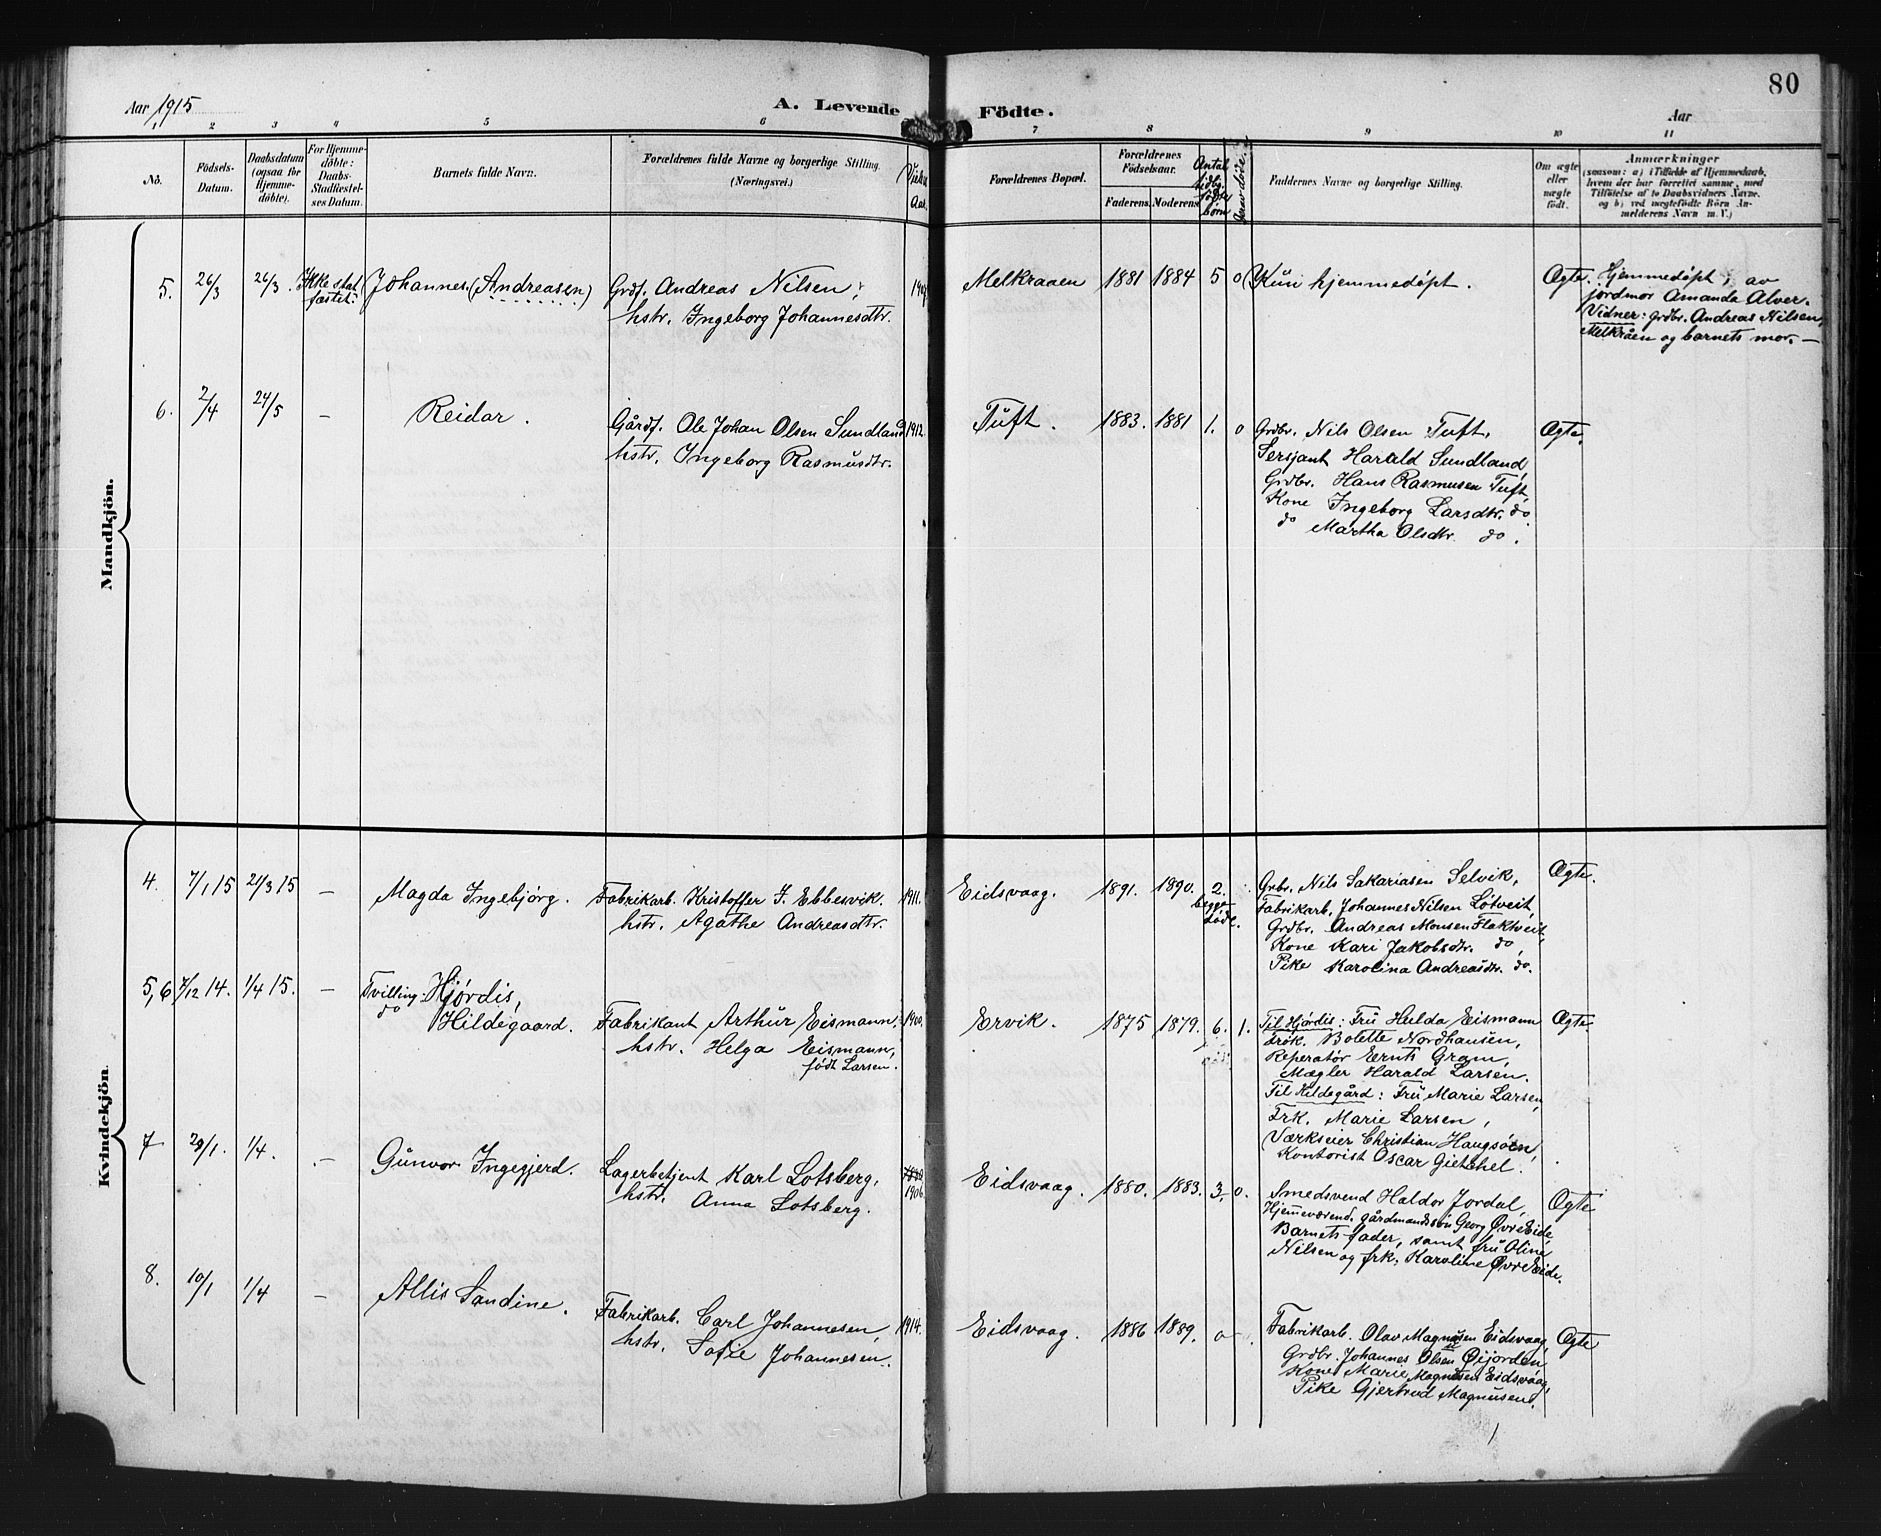 80
Aar 1915
A. Levende Födte.
Aar
1 2 3 4 5 6 7 8 9 10 11
No.
Födsels-Datum.
Daabsdatum (ogsaa for Hjemme-döbte).
For Hjemme-döbte: Daabs-Stadfæstel-ses Datum.
Barnets fulde Navn.
Forældrenes fulde Navne og borgerlige Stilling. (Næringsvei.)
Vielses Aar.
Forældrenes Bopæl.
Forældrenes Födselsaar.
Faderens. Moderens.
Antal tidl. födte börn
derav döde.
Faddernes Navne og borgerlige Stilling.
Om ægte eller uægte födt.
Anmærkninger
(saasom: a) i Tilfælde af Hjemmedaab, hvem der har forrettet samme, med Tilföielse af to Daabsvidners Navne, og b) ved uægtefödte Börn An-melderens Navn m. V.)
Mandkjön.
5. 26/3 26/3. Ikke stad-fæstet. Johannes (Andreasen) Grdf. Andreas Nilsen,
hstr. Ingeborg Johannesdtr.
Melkraaen 1881 1884 5 0 Kun hjemmedøpt. Ægte.
Hjemmedøpt, av
jordmor Amanda Alver.
Vidner: grdbr. Andreas Nilsen,
Melkråen og barnets mor. —
6. 2/4 24/5 — Reidar. Gårdf. Ole Johan Olsen Sundland 1912.
hstr. Ingeborg Rasmusdtr.
Tuft. 1883. 1881 1. 0 Grdbr. Nils Olsen Tuft, Ægte
Sersjant Harald Sundland,
Grdbr. Hans Rasmusen Tuft,
Kone Ingeborg Larsdtr. do
do Martha Olsdtr. do.
Kvindekjön
4. 7/1 15 21/3 15 — Magda Ingebjørg. Fabrikarb. Kristoffer J. Ebbesvik. 1911.
hstr. Agathe Andreasdtr.
Eidsvaag. 1891. 1890. 2. begge døde. Grbr. Nils Sakariasen Selvik, Ægte.
Fabrikarb. Johannes Nilsen Løtveit,
Grdbr. Andreas Monsen Flaktveit,
Kone Kari Jakobsdtr. do,
Pike Karolina Andreasdtr. do.
5, 6 7/12 14. 1/4 15. — Tvilling: Hjørdis,
do Hildegaard. Fabrikant Arthur Eismann, 1900.
hstr. Helga Eismann,
født Larsen.
Ervik. 1875 1879. 6. 1. Til Hjørdis: Fru Hulda Eismann Ægte
Frøk. Bolette Nordhausen,
Reperatør Ernts Gram,
Mægler Harald Larsen.
Til Hildegård: Fru Marie Larsen,
Frk. Marie Larsen,
Værkseier Christian Haugsøen,
Kontorist Oscar Gietchel.
7 29/1. 1/4. — Gunvor Ingegjerd. Lagerbetjent Karl Lotsberg, 1906.
hstr. Anna Lotsberg.
Eidsvaag. 1880. 1883. 3. 0. Smedsvend Haldor Jordal, Ægte
Hjemmeværend. gårdmandssøn Georg Øvre Eide,
Barnets fader, samt fru Oline
Nilsen og frk. Karoline Øvre Eide.
8. 10/1 1/4 — Allis Sandine. Fabrikarb. Carl Johannesen, 1914.
hstr. Sofie Johannesen.
Eidsvaag. 1886 1889. 0 Fabrikarb. Olav Magnusen Eidsvaag, Ægte
Grdbr. Johannes Olsen Øijorden,
Kone Marie Magnusen Eidsvaag,
Pike Gjertrud Magnusen.